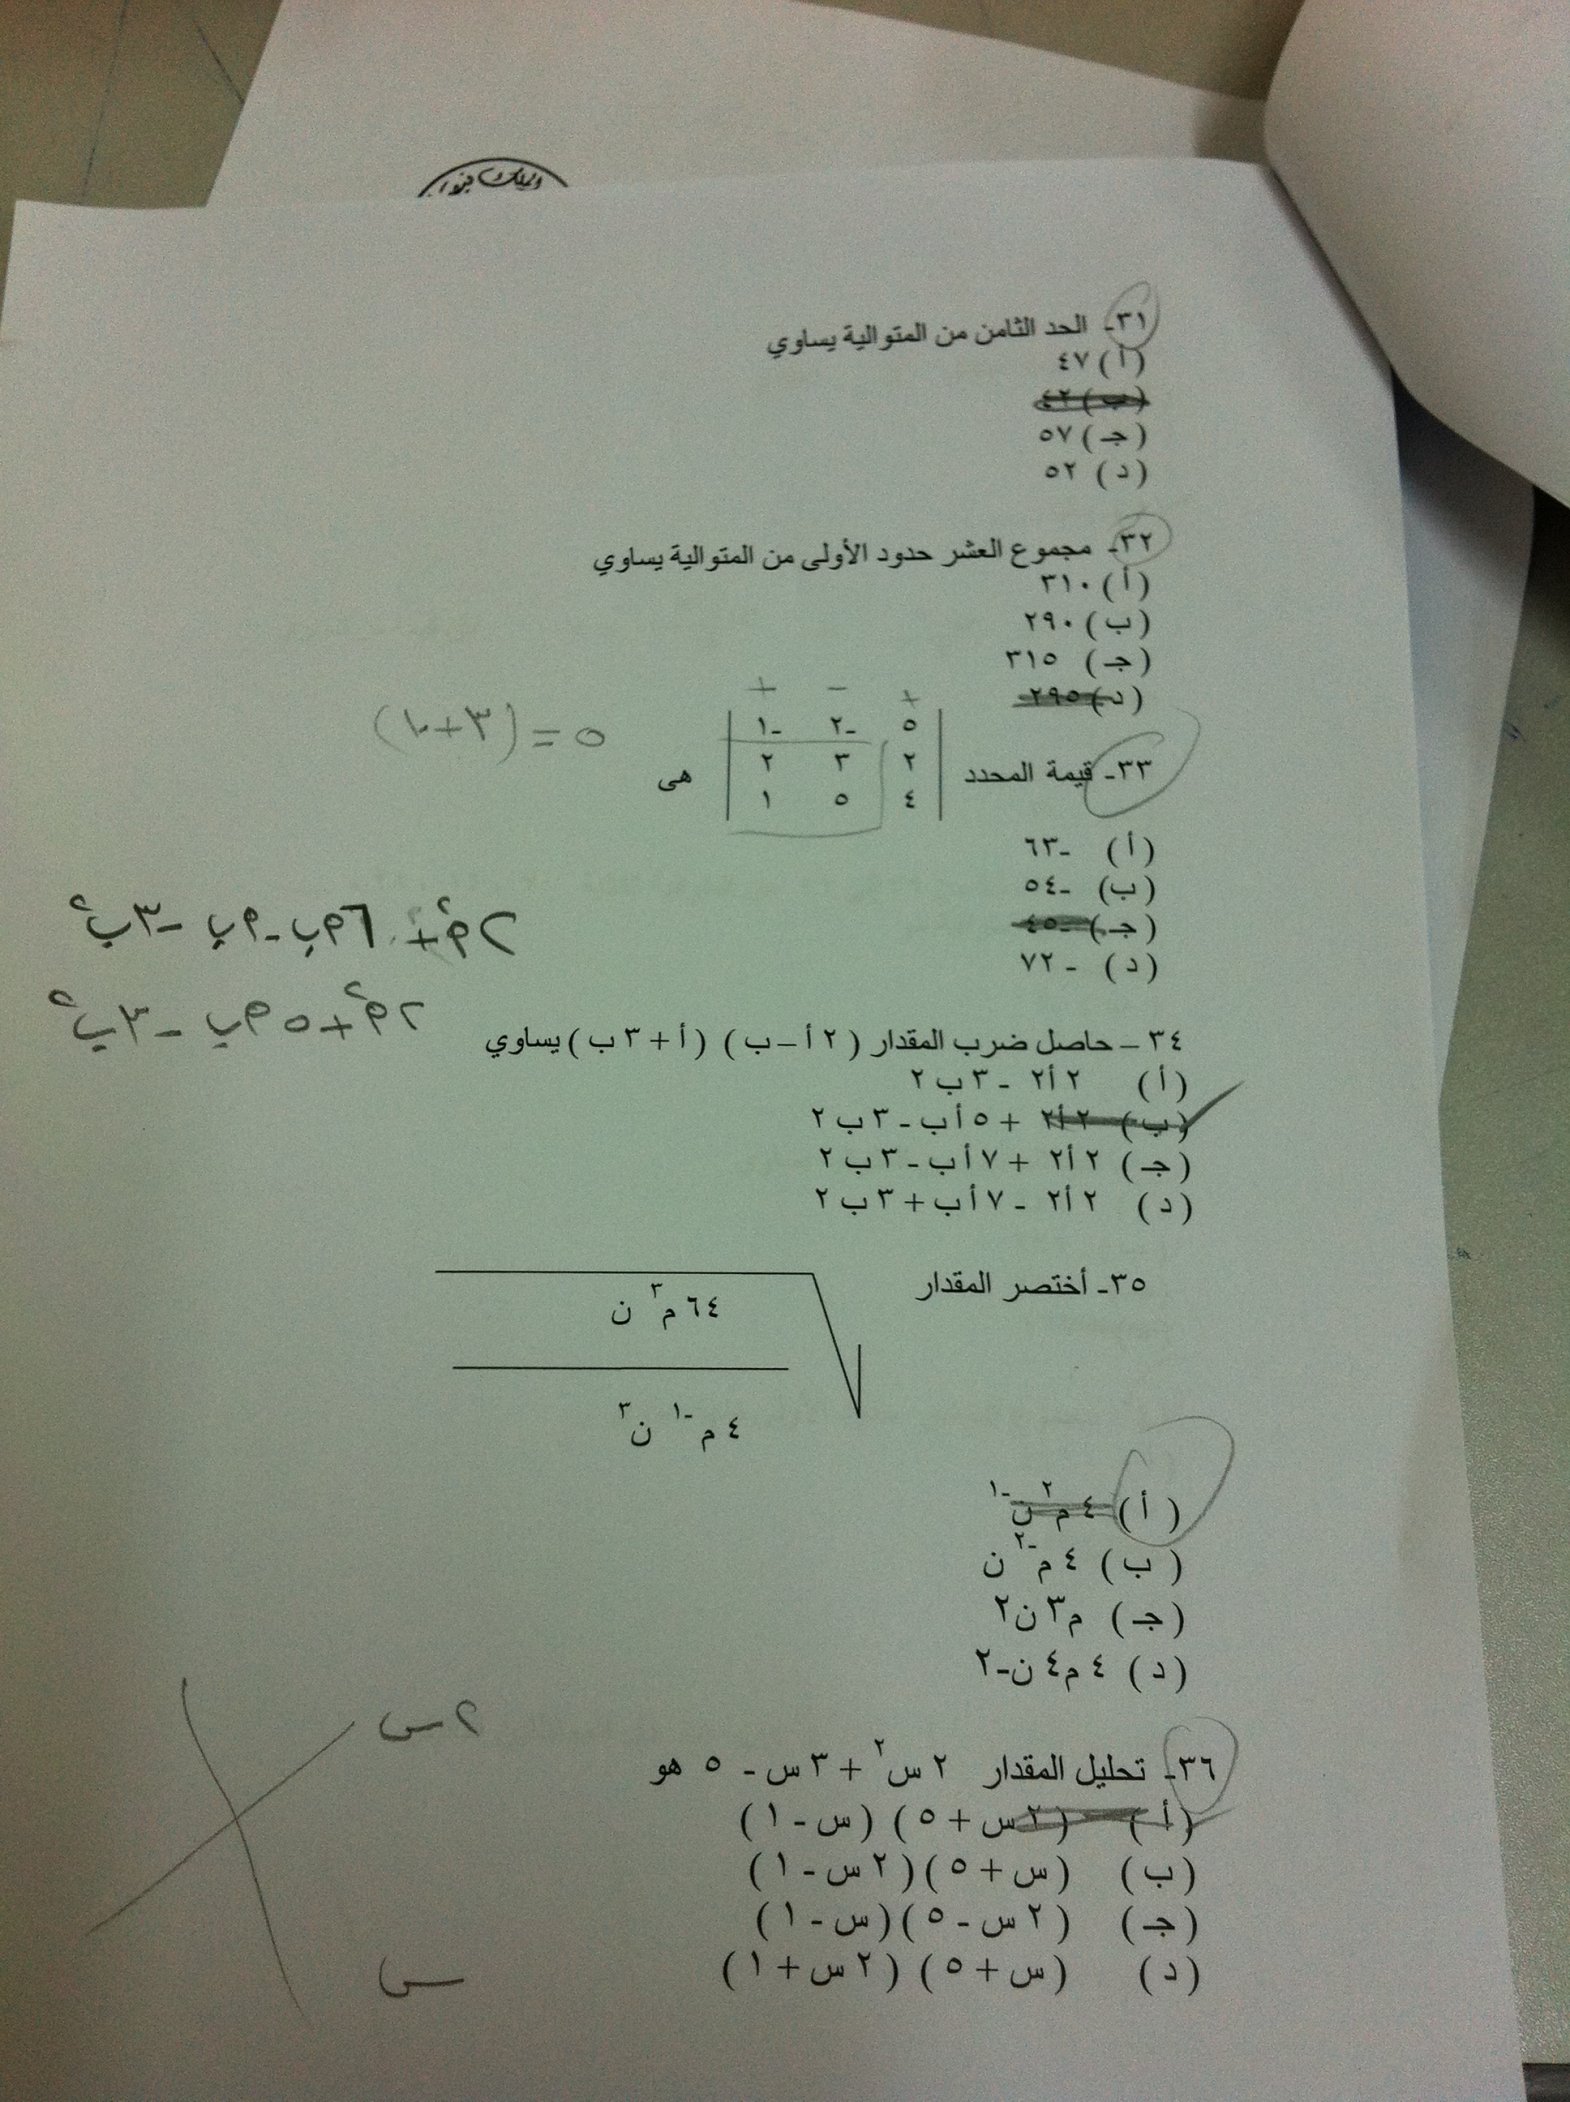 ٣١- الحد الثامن من المتوالية يساوي
(أ) ٤٧
(ب) ٤٢
(جـ) ٥٧
(د) ٥٢
٣٢- مجموع العشر حدود الأولى من المتوالية يساوي
(أ) ٣١٠
(ب) ٢٩٠
(جـ) ٣١٥
(د) ٢٩٥
+ - +
٥ -٢ -١
٣٣- قيمة المحدد ٢ ٣ ٢ هى
٤ ٥ ١
٥ = (٣+١٠)
(أ) -٦٣
(ب) -٥٤
(جـ) -٤٥
(د) -٧٢
٢أ٢ + ٦أب - أب - ٣ب٢
٢أ٢ + ٥أب - ٣ب٢
٣٤ – حاصل ضرب المقدار (٢أ – ب) (أ + ٣ب) يساوي
(أ) ٢أ٢ - ٣ب٢
(ب) ٢أ٢ + ٥أب - ٣ب٢
(جـ) ٢أ٢ + ٧أب - ٣ب٢
(د) ٢أ٢ - ٧أب + ٣ب٢
٣٥- أختصر المقدار
٦٤ م٣ ن
٤ م-١ ن٣
(أ) ٤ م٢ ن-١
(ب) ٤ م-٢ ن
(جـ) م٣ ن٢
(د) ٤ م٤ ن-٢
٣٦- تحليل المقدار ٢س٢ + ٣س - ٥ هو
(أ) (٢س + ٥) (س - ١)
(ب) (س + ٥) (٢س - ١)
(جـ) (٢س - ٥) (س - ١)
(د) (س + ٥) (٢س + ١)
٢س
س